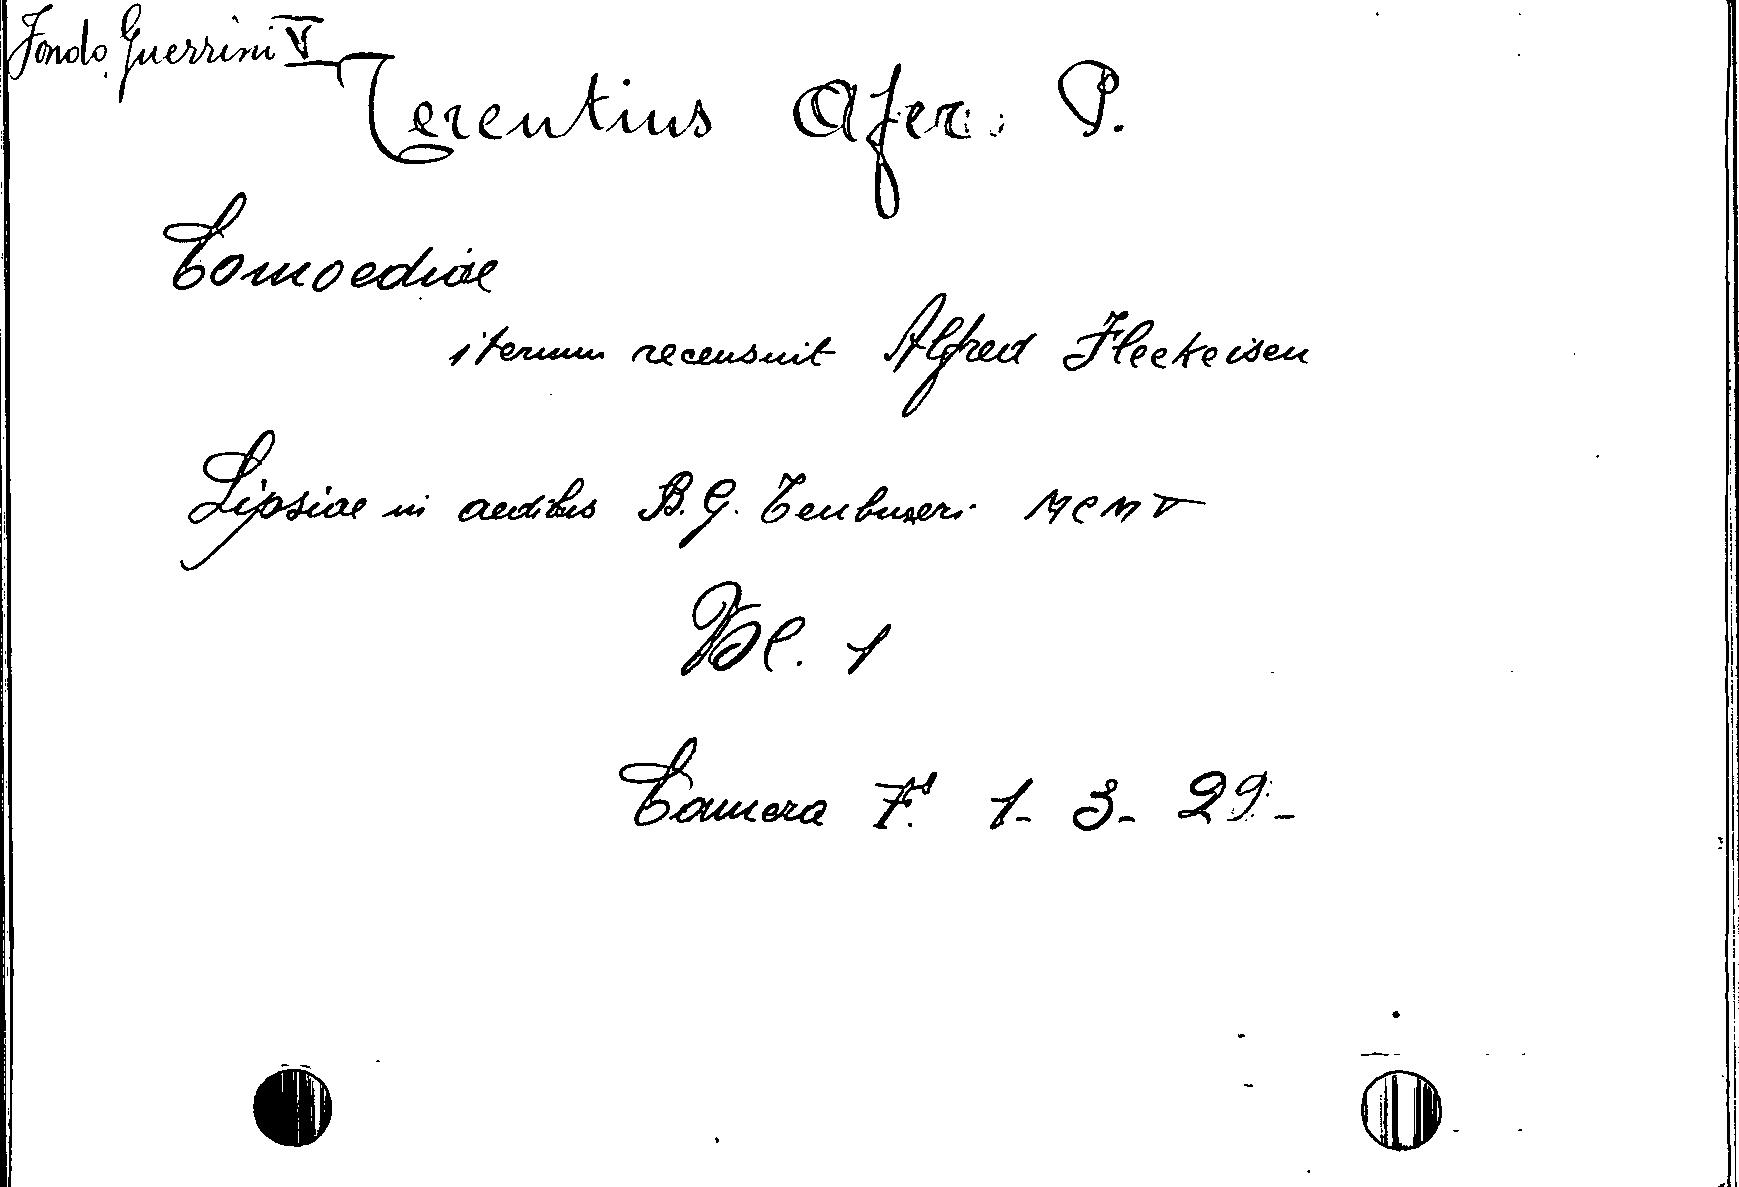 Fondo Guerrini V
Terentius Afer. P.
Comoediae
iterum recensuit Alfred Fleckeisen
Lipsiae in aedibus B. G. Teubneri MCMV
Vol. 1
Camera F.s 1- 3- 29.-